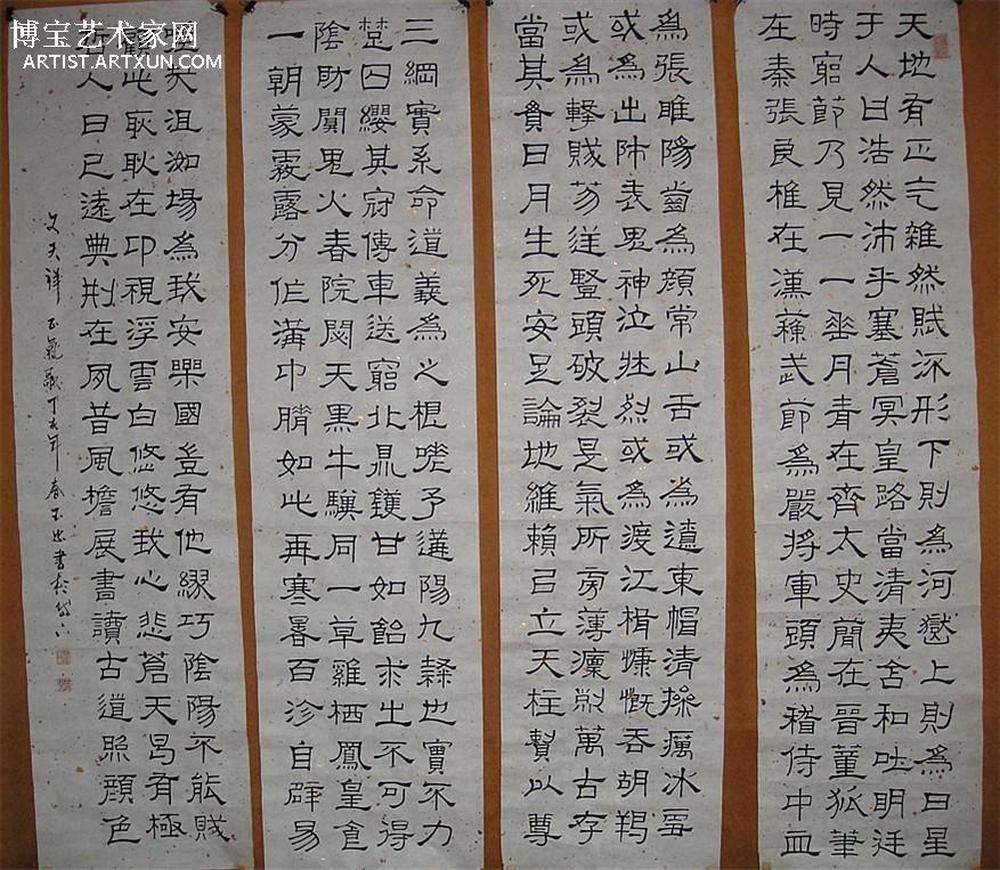 博宝艺术家网
ARTIST.ARTXUN.COM
天地有正气雜然賦流形下則為河嶽上則為日星
于人曰浩然沛乎塞蒼冥皇路當清夷含和吐明廷
時窮節乃見一一垂丹青在齊太史簡在晉董狐筆
在秦張良椎在漢蘇武節為嚴將軍頭為稽侍中血
為張睢陽齒為顏常山舌或為遼東帽清操厲冰雪
或為出師表鬼神泣壯烈或為渡江楫慷慨吞胡羯
或為擊賊笏逆豎頭破裂是氣所旁薄凜冽萬古存
當其貫日月生死安足論地維賴以立天柱賴以尊
三綱實系命道義為之根嗟予遘陽九隸也實不力
楚囚纓其冠傳車送窮北鼎鑊甘如飴求之不可得
陰防闃鬼火春院閟天黑牛驥同一草雞栖鳳皇食
一朝蒙霧露分作溝中瘠如此再寒暑百沴自辟易
嗟哉沮洳場為我安樂國豈有他繆巧陰陽不能賊
顧此耿耿在仰視浮雲白悠悠我心悲蒼天曷有極
哲人日已遠典刑在夙昔風檐展書讀古道照顏色
文天祥 正氣歌 丁亥年 春 書於